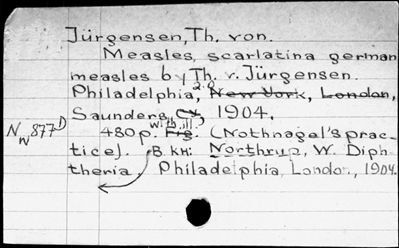 Jürgensen, Th. von.
Measles, scarlatina german
measles by Th. v. Jürgensen.
Philadelphia, New York, London,
Saunders, 1904.
Nw 877 D 480 p. with ill. Fig. (Nothnagel's prac-
tice). B. KH: Northrup, W. Diph
theria. Philadelphia, London, 1904.